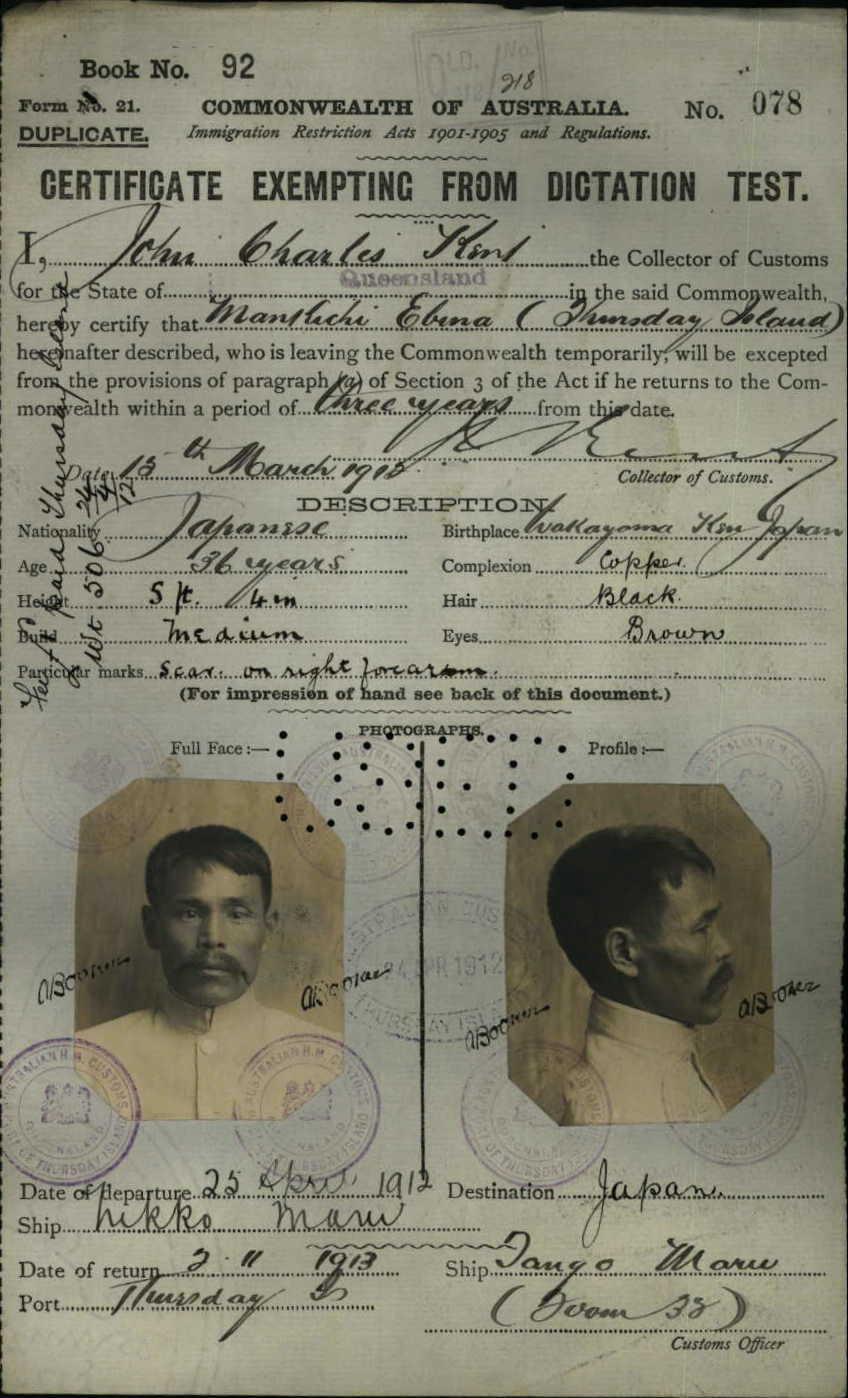 Book No. 92
218
Form No. 21. COMMONWEALTH OF AUSTRALIA. No. 078
DUPLICATE. Immigration Restriction Acts 1901-1905 and Regulations.
CERTIFICATE EXEMPTING FROM DICTATION TEST.
I, John Charles Kent the Collector of Customs
for the State of Queensland in the said Commonwealth,
hereby certify that Ebina (Thursday Island)
hereinafter described, who is leaving the Commonwealth temporarily, will be excepted
from the provisions of paragraph (a) of Section 3 of the Act if he returns to the Com-
monwealth within a period of three years from this date.
Date 13th March 1912
Collector of Customs.
DESCRIPTION
Nationality Japanese Birthplace Wakayama Ken Japan
Age 36 years Complexion Copper.
Height 5 ft. 4 in Hair Black.
Build Medium Eyes Brown
Particular marks Scar on right forearm.
(For impression of hand see back of this document.)
PHOTOGRAPHS.
Full Face:— Profile:—
Date of departure 25 April 1912 Destination Japan.
Ship Nikko Maru
Date of return 2 11 1913 Ship Tango Maru
Port Thursday Is
Customs Officer